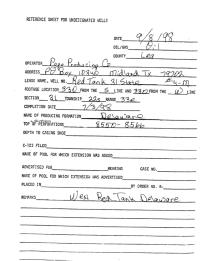 REFERENCE SHEET FOR UNDESIGNATED WELLS
DATE 9/8/98
OIL/GAS Oil
COUNTY Lea
OPERATOR Pogo Producing Co
ADDRESS PO Box 10340 Midland Tx 79702
LEASE NAME, WELL NO. Red Tank 31 State #4-M
FOOTAGE LOCATION 330 FROM THE S LINE AND 330 FROM THE W LINE
SECTION 31 TOWNSHIP 22s RANGE 33e
COMPLETION DATE 7/3/98
NAME OF PRODUCING FORMATION Delaware
TOP OF PERFORATIONS 8550-8566
DEPTH TO CASING SHOE
C-123 FILED
NAME OF POOL FOR WHICH EXTENSION WAS ASKED
ADVERTISED FOR HEARING CASE NO.
NAME OF POOL FOR WHICH EXTENSION WAS ADVERTISED
PLACED IN BY ORDER NO. R-
REMARKS West Red Tank Delaware